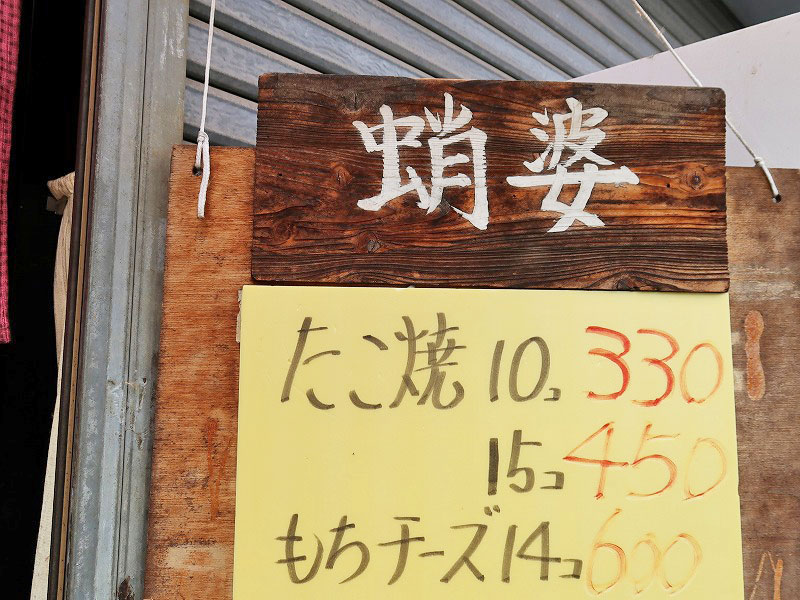 蛸婆
たこ焼10コ 330
15コ 450
もちチーズ14コ 600